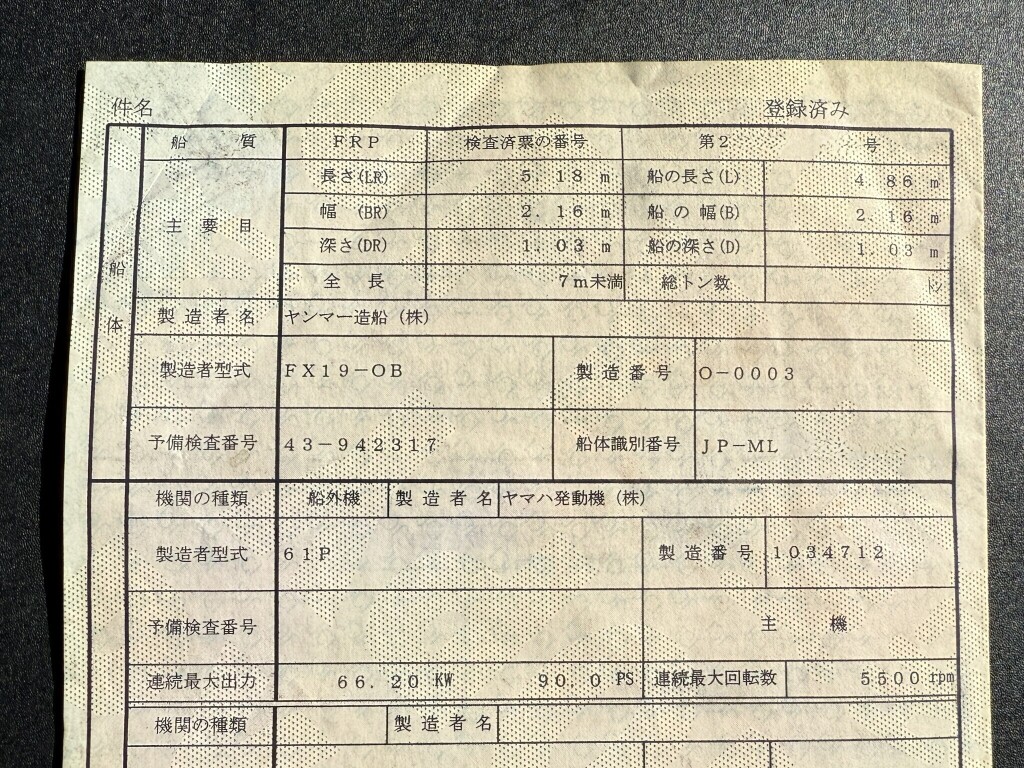 件名 登録済み
船体
船質 FRP 検査済票の番号 第2 号
主要目
長さ(LR) 5.18 m 船の長さ(L) 4.86 m
幅 (BR) 2.16 m 船の幅(B) 2.16 m
深さ(DR) 1.03 m 船の深さ(D) 1.03 m
全長 7m未満 総トン数 トン
製造者名 ヤンマー造船(株)
製造者型式 FX19-OB 製造番号 O-0003
予備検査番号 43-942317 船体識別番号 JP-ML
機関の種類 船外機 製造者名 ヤマハ発動機(株)
製造者型式 61P 製造番号 1034712
予備検査番号 主機
連続最大出力 66.20 KW 90.0 PS 連続最大回転数 5500 rpm
機関の種類 製造者名